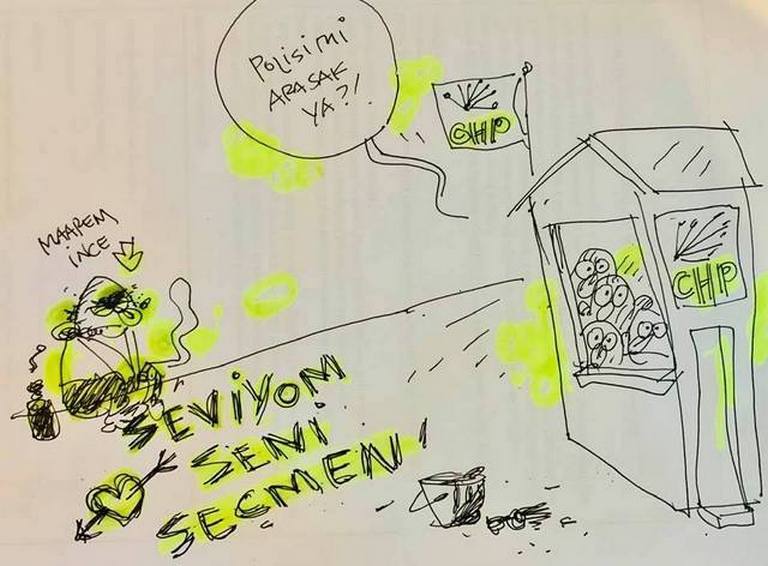 POLİSİ Mİ
ARASAK
YA?!
CHP
MAAREM
İNCE
CHP
SEVİYOM
SENİ
SEÇMEN!